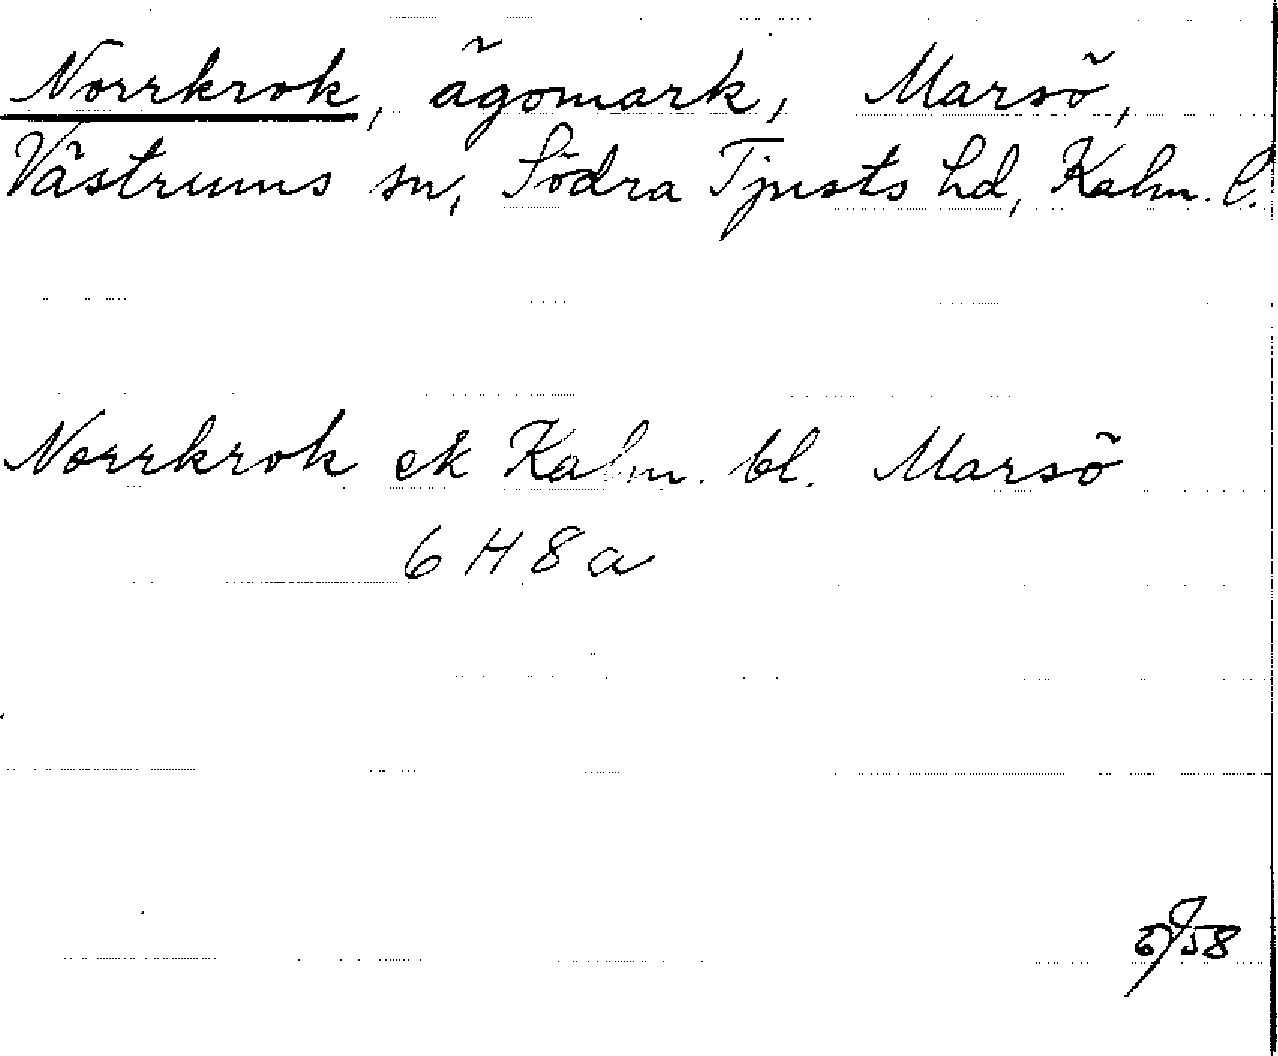 Norrkrok, ägomark, Marsö,
Västrums sn, Södra Tjusts hd, Kalm. l.
Norrkrok ek Kalm. bl. Marsö
6 H 8 a